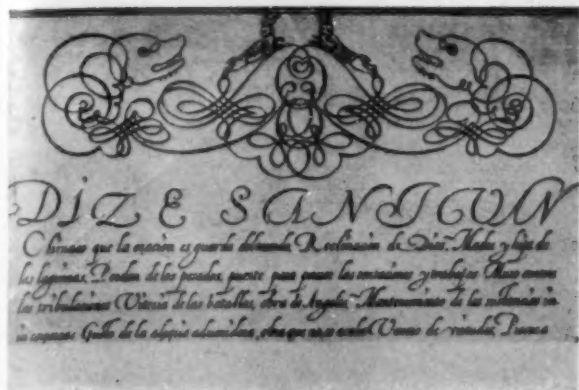 DIZE SAN IUAN
que la oracion es guarda del mundo, Reclinacion de Dios, Madre y hija de
las lagrimas, Perdon de los pecados, puente para passar las tentaciones y trabajos Muro contra
las tribulaciones Vitoria de las batallas, obra de Angeles Mantenimiento de las
Gusto de la alegria advenidera, obra que no se acaba Venero de virtudes,